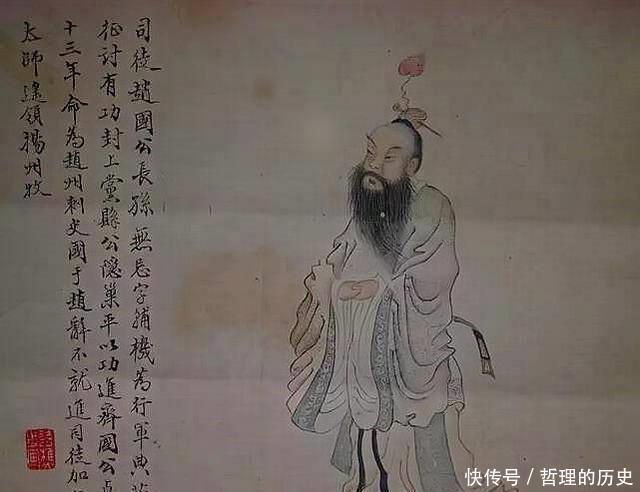 司徒趙國公長孫無忌字補機為行軍典
征討有功封上黨縣公隱巢平以功進齊國公
十三年命為趙州刺史國于趙辭不就進司徒加
太師遙領楊州牧
快传号 / 哲理的历史